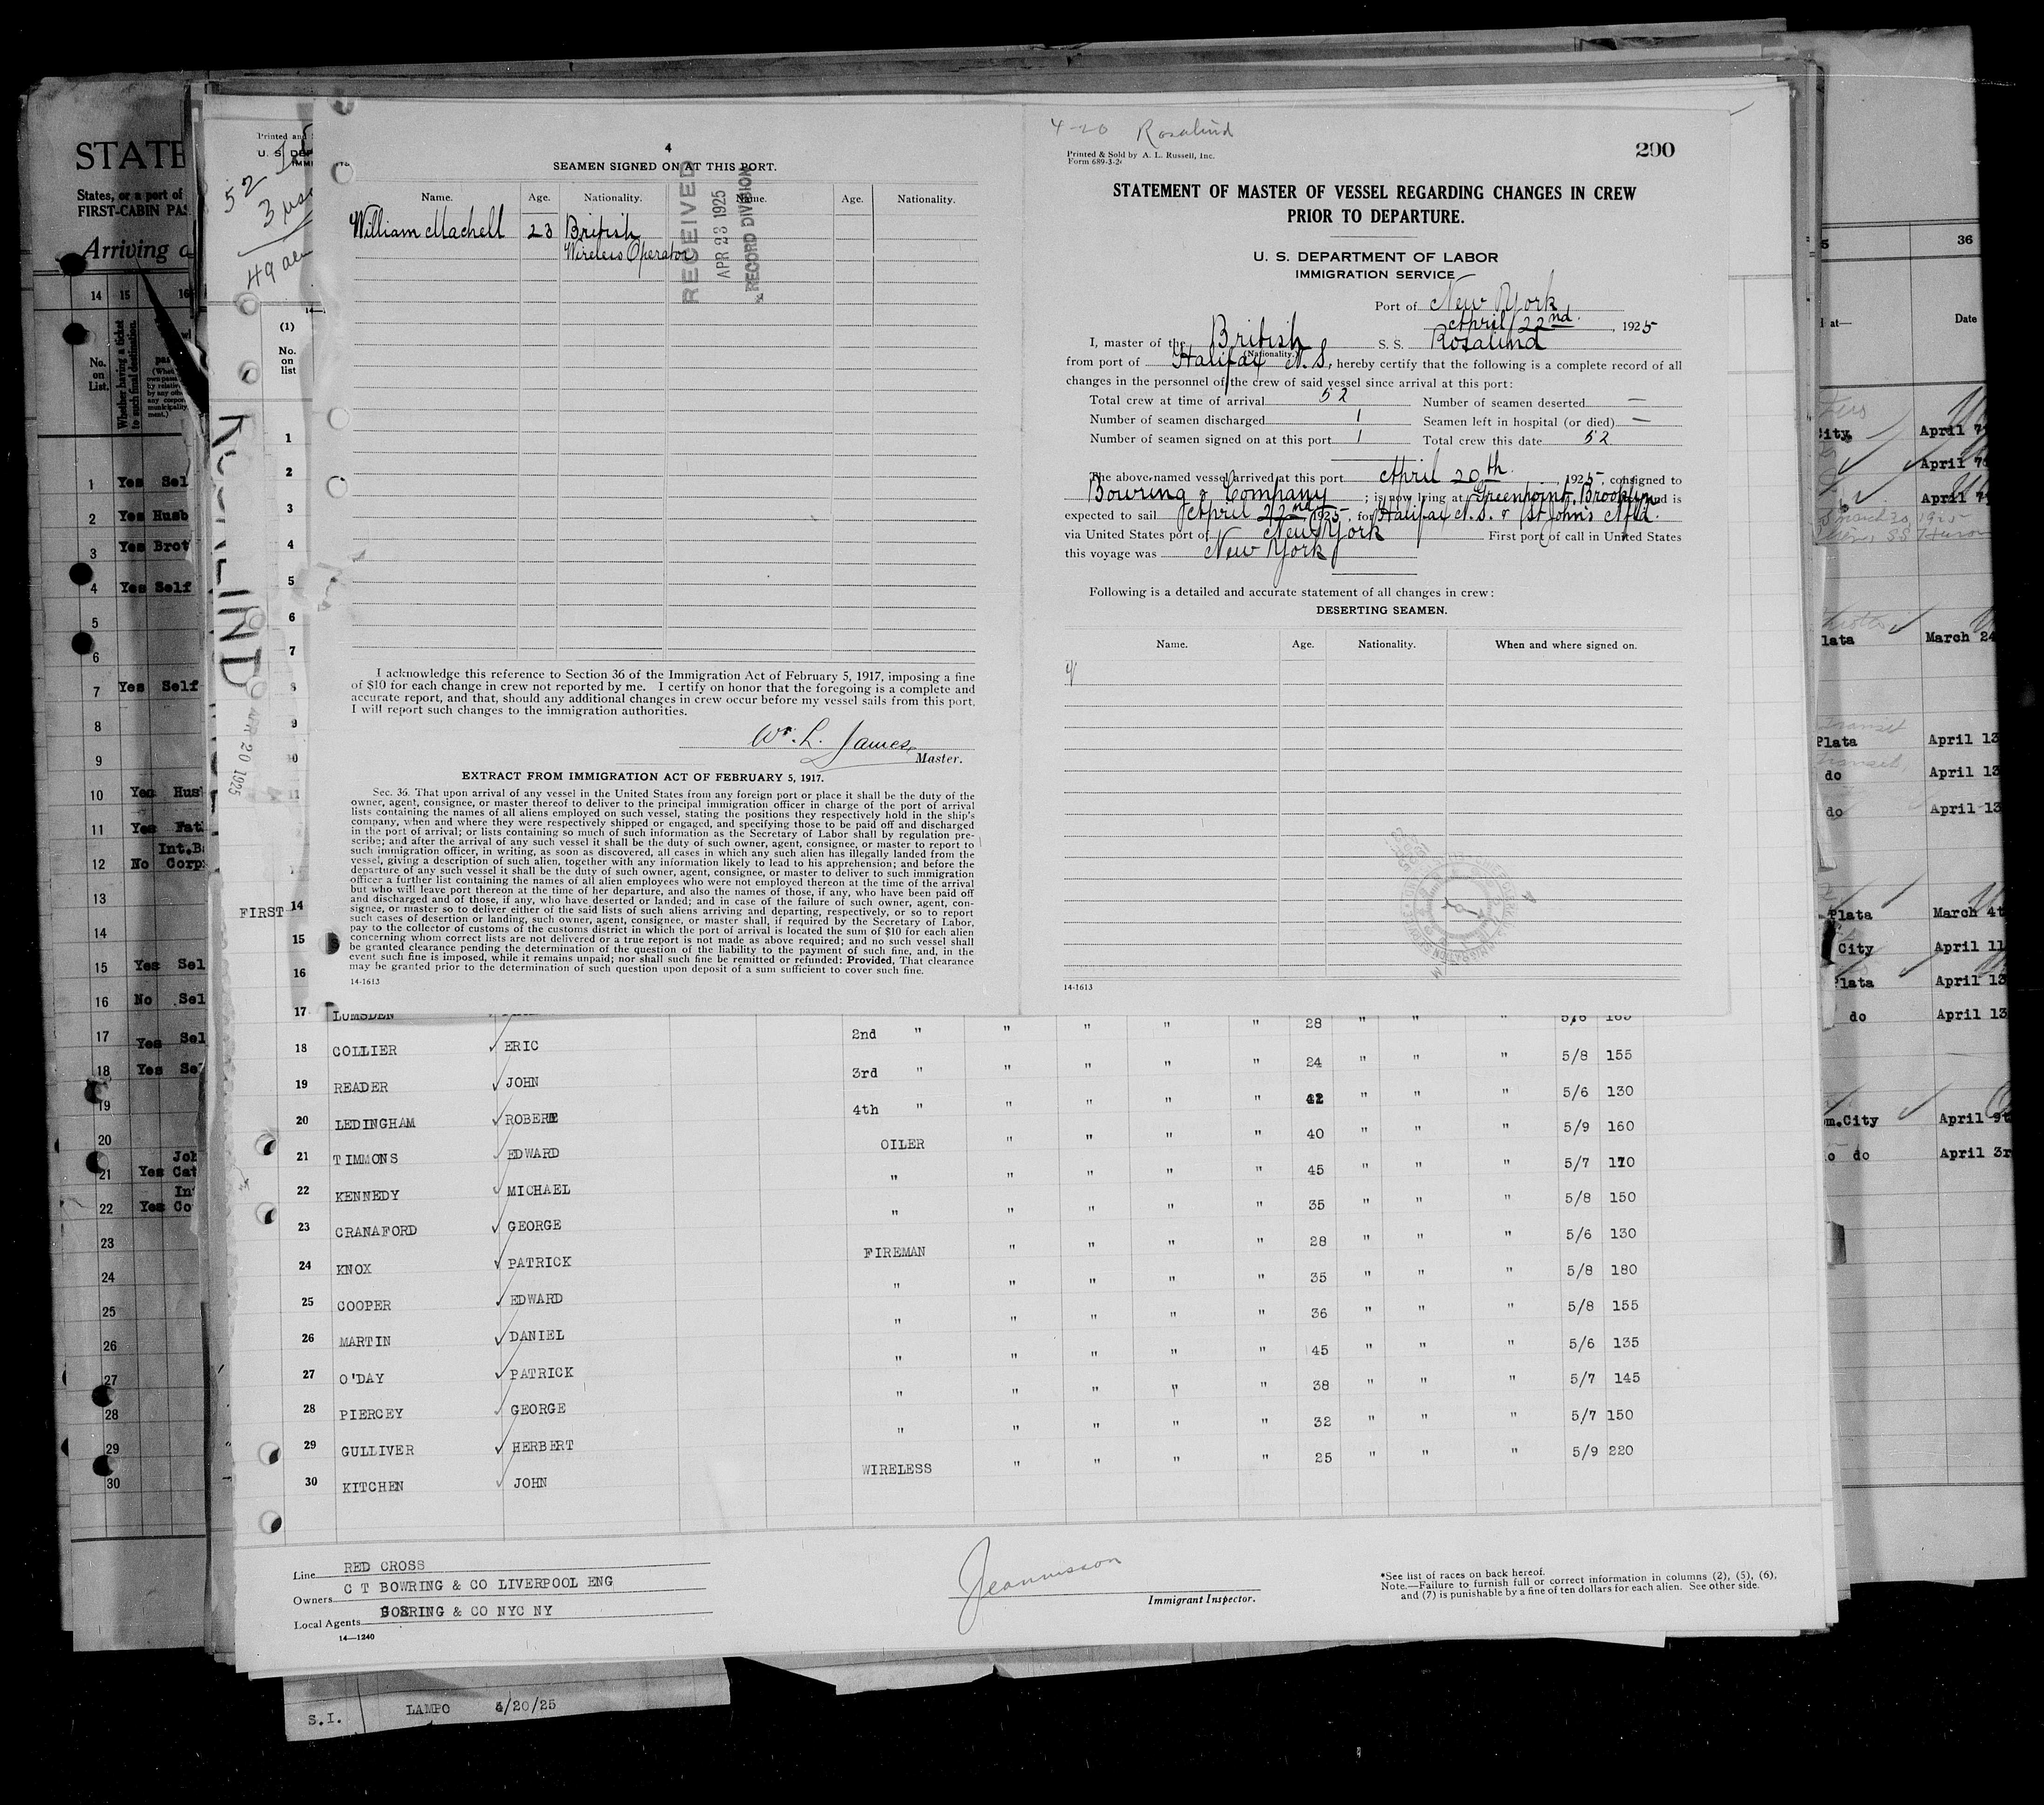 4
SEAMEN SIGNED ON AT THIS PORT.
Name. Age. Nationality. Name. Age. Nationality.
William Machell 23 British
Wireless Operator
RECEIVED
APR 23 1925
RECORD DIVISION
I acknowledge this reference to Section 36 of the Immigration Act of February 5, 1917, imposing a fine
of $10 for each change in crew not reported by me. I certify on honor that the foregoing is a complete and
accurate report, and that, should any additional changes in crew occur before my vessel sails from this port,
I will report such changes to the immigration authorities.
Wm. L. James
Master.
EXTRACT FROM IMMIGRATION ACT OF FEBRUARY 5, 1917.
Sec. 36. That upon arrival of any vessel in the United States from any foreign port or place it shall be the duty of the
owner, agent, consignee, or master thereof to deliver to the principal immigration officer in charge of the port of arrival
lists containing the names of all aliens employed on such vessel, stating the positions they respectively hold in the ship's
company, when and where they were respectively shipped or engaged, and specifying those to be paid off and discharged
in the port of arrival; or lists containing so much of such information as the Secretary of Labor shall by regulation pre-
scribe; and after the arrival of any such vessel it shall be the duty of such owner, agent, consignee, or master to report to
such immigration officer, in writing, as soon as discovered, all cases in which any such alien has illegally landed from the
vessel, giving a description of such alien, together with any information likely to lead to his apprehension; and before the
departure of any such vessel it shall be the duty of such owner, agent, consignee, or master to deliver to such immigration
officer a further list containing the names of all alien employees who were not employed thereon at the time of the arrival
but who will leave port thereon at the time of her departure, and also the names of those, if any, who have been paid off
and discharged and of those, if any, who have deserted or landed; and in case of the failure of such owner, agent, con-
signee, or master so to deliver either of the said lists of such aliens arriving and departing, respectively, or so to report
such cases of desertion or landing, such owner, agent, consignee, or master shall, if required by the Secretary of Labor,
pay to the collector of customs of the customs district in which the port of arrival is located the sum of $10 for each alien
concerning whom correct lists are not delivered or a true report is not made as above required; and no such vessel shall
be granted clearance pending the determination of the question of the liability to the payment of such fine, and, in the
event such fine is imposed, while it remains unpaid; nor shall such fine be remitted or refunded: Provided, That clearance
may be granted prior to the determination of such question upon deposit of a sum sufficient to cover such fine.
14-1613
4-20 Rosalind
Printed & Sold by A. L. Russell, Inc.
Form 689-3-2
290
STATEMENT OF MASTER OF VESSEL REGARDING CHANGES IN CREW
PRIOR TO DEPARTURE.
U. S. DEPARTMENT OF LABOR
IMMIGRATION SERVICE
Port of New York
April 22nd, 1925
I, master of the British S. S. Rosalind
(Nationality.)
from port of Halifax N.S., hereby certify that the following is a complete record of all
changes in the personnel of the crew of said vessel since arrival at this port:
Total crew at time of arrival 52 Number of seamen deserted —
Number of seamen discharged 1 Seamen left in hospital (or died) —
Number of seamen signed on at this port 1 Total crew this date 52
The above-named vessel arrived at this port April 20th, 1925, consigned to
Bowring & Company; is now lying at Greenpoint, Brooklyn and is
expected to sail April 22nd, 1925, for Halifax N.S. & St John's Nfld.
via United States port of New York First port of call in United States
this voyage was New York
Following is a detailed and accurate statement of all changes in crew:
DESERTING SEAMEN.
Name. Age. Nationality. When and where signed on.
14-1613
STATE
States, or a port of
FIRST-CABIN PAS
Arriving
14 15 16
No. on List.
Whether having a ticket to such final destination.
1 Yes Sel
2 Yes Husb
3 Yes Brot
4 Yes Self
5
6
7 Yes Self
8
9
10 Yes Hus
11 Yes Fat
Int.B
12 No Corp
13
14
15 Yes Sel
16 No Sel
17 Yes Sel
18 Yes Se
19
20
Joh
21 Yes Cat
In
22 Yes Co
23
24
25
26
27
28
29
30
Printed and
52
3 us
49
ROSALIND
APR 20 1925
(1)
No.
on
list
1
2
3
4
5
6
7
8
9
10
11
FIRST 14
15
16
17 LUMSDEN 2nd " " " " " 28 " " "
18 COLLIER ERIC 3rd " " " " " 24 " " " 5/8 155
19 READER JOHN 4th " " " " " 42 " " " 5/6 130
20 LEDINGHAM ROBERT OILER " " " " 40 " " " 5/9 160
21 TIMMONS EDWARD " " " " " 45 " " " 5/7 170
22 KENNEDY MICHAEL " " " " " 35 " " " 5/8 150
23 CRANAFORD GEORGE FIREMAN " " " " 28 " " " 5/6 130
24 KNOX PATRICK " " " " " 35 " " " 5/8 180
25 COOPER EDWARD " " " " " 36 " " " 5/8 155
26 MARTIN DANIEL " " " " " 45 " " " 5/6 135
27 O'DAY PATRICK " " " " " 38 " " " 5/7 145
28 PIERCEY GEORGE " " " " " 32 " " " 5/7 150
29 GULLIVER HERBERT WIRELESS " " " " 25 " " " 5/9 220
30 KITCHEN JOHN
Line RED CROSS
Owners C T BOWRING & CO LIVERPOOL ENG
Local Agents BOWRING & CO NYC NY
14—1240
Jeannisson
Immigrant Inspector.
*See list of races on back hereof.
Note.—Failure to furnish full or correct information in columns (2), (5), (6),
and (7) is punishable by a fine of ten dollars for each alien. See other side.
S.I. LAMPO 4/20/25
36
Date
City April 7
April 7
April 7
March 30, 1925
lata March 24
Plata April 13
do April 13
do April 13
Plata March 4t
City April 11
Plata April 13
do April 13
om.City April 9t
do April 3r